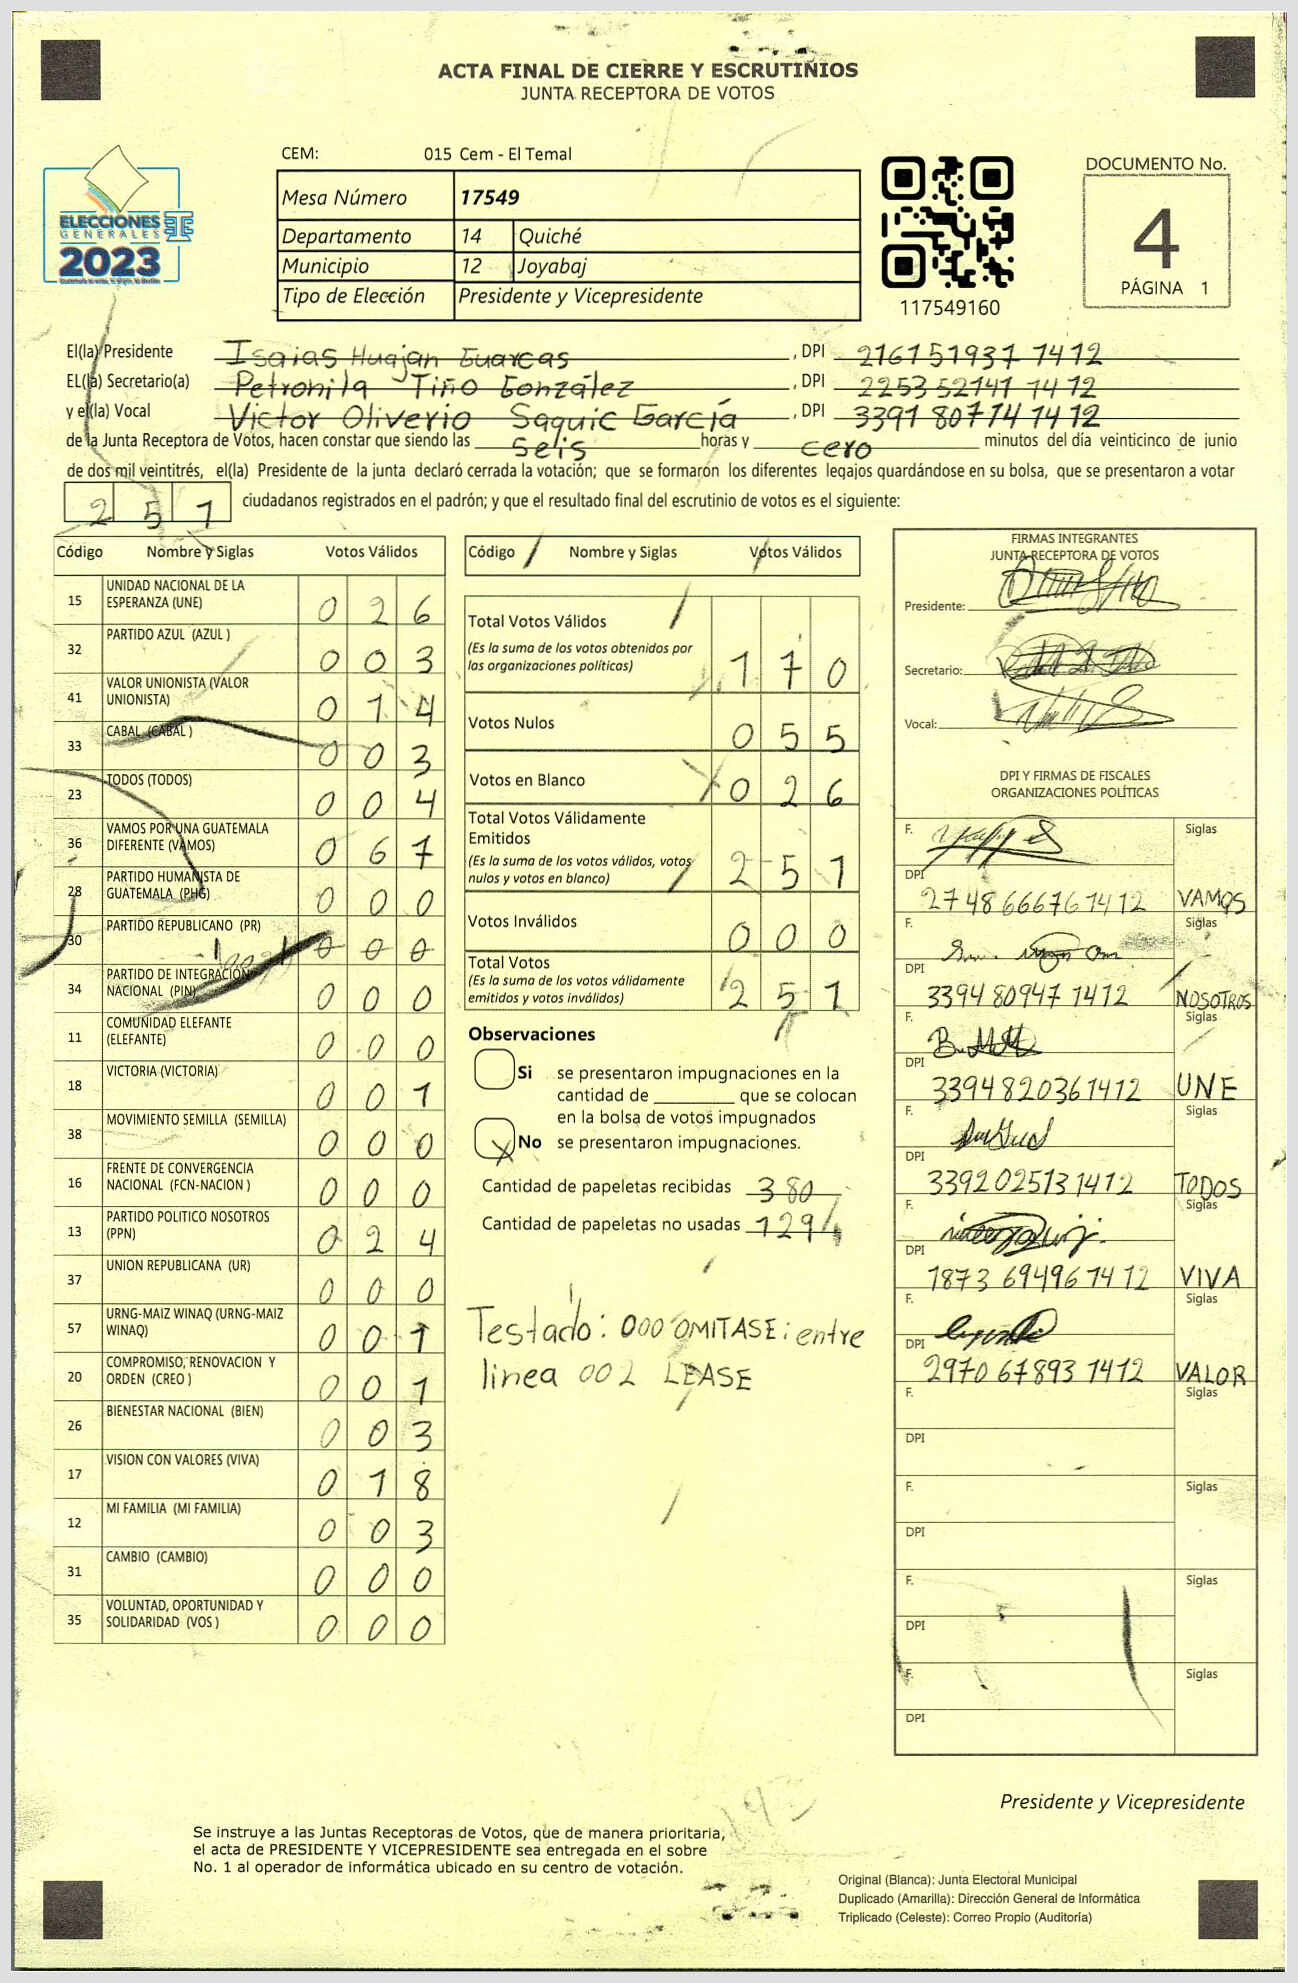 ACTA FINAL DE CIERRE Y ESCRUTINIOS
JUNTA RECEPTORA DE VOTOS
ELECCIONES
GENERALES
2023
CEM: 015 Cem - El Temal
Mesa Número 17549
Departamento 14 Quiché
Municipio 12 Joyabaj
Tipo de Elección Presidente y Vicepresidente
117549160
DOCUMENTO No.
4
PÁGINA 1
El(la) Presidente Isaias Huajan Guarcas, DPI 216151937 1412
EL(la) Secretario(a) Petronila Tiño González, DPI 2253 52141 1412
y el(la) Vocal Victor Oliverio Saquic García, DPI 3391 80774 1412
de la Junta Receptora de Votos, hacen constar que siendo las seis horas y cero minutos del día veinticinco de junio
de dos mil veintitrés, el(la) Presidente de la junta declaró cerrada la votación; que se formaron los diferentes legajos quardándose en su bolsa, que se presentaron a votar
251 ciudadanos registrados en el padrón; y que el resultado final del escrutinio de votos es el siguiente:
Código Nombre y Siglas Votos Válidos
15 UNIDAD NACIONAL DE LA
ESPERANZA (UNE) 0 2 6
32 PARTIDO AZUL (AZUL ) 0 0 3
41 VALOR UNIONISTA (VALOR
UNIONISTA) 0 1 4
33 CABAL (CABAL ) 0 0 3
23 TODOS (TODOS) 0 0 4
36 VAMOS POR UNA GUATEMALA
DIFERENTE (VAMOS) 0 6 7
28 PARTIDO HUMANISTA DE
GUATEMALA (PHG) 0 0 0
30 PARTIDO REPUBLICANO (PR) 0 0 0
34 PARTIDO DE INTEGRACIÓN
NACIONAL (PIN) 0 0 0
11 COMUNIDAD ELEFANTE
(ELEFANTE) 0 0 0
18 VICTORIA (VICTORIA) 0 0 1
38 MOVIMIENTO SEMILLA (SEMILLA) 0 0 0
16 FRENTE DE CONVERGENCIA
NACIONAL (FCN-NACION ) 0 0 0
13 PARTIDO POLITICO NOSOTROS
(PPN) 0 2 4
37 UNION REPUBLICANA (UR) 0 0 0
57 URNG-MAIZ WINAQ (URNG-MAIZ
WINAQ) 0 0 1
20 COMPROMISO, RENOVACION Y
ORDEN (CREO ) 0 0 1
26 BIENESTAR NACIONAL (BIEN) 0 0 3
17 VISION CON VALORES (VIVA) 0 1 8
12 MI FAMILIA (MI FAMILIA) 0 0 3
31 CAMBIO (CAMBIO) 0 0 0
35 VOLUNTAD, OPORTUNIDAD Y
SOLIDARIDAD (VOS ) 0 0 0
Código Nombre y Siglas Votos Válidos
Total Votos Válidos
(Es la suma de los votos obtenidos por
las organizaciones políticas) 1 7 0
Votos Nulos 0 5 5
Votos en Blanco 0 2 6
Total Votos Válidamente
Emitidos
(Es la suma de los votos válidos, votos
nulos y votos en blanco) 2 5 1
Votos Inválidos 0 0 0
Total Votos
(Es la suma de los votos válidamente
emitidos y votos inválidos) 2 5 1
Observaciones
Si se presentaron impugnaciones en la
cantidad de ________ que se colocan
en la bolsa de votos impugnados
X No se presentaron impugnaciones.
Cantidad de papeletas recibidas 380
Cantidad de papeletas no usadas 129
Testado: 000 OMITASE: entre
linea 002 LEASE
FIRMAS INTEGRANTES
JUNTA RECEPTORA DE VOTOS
Presidente:
Secretario:
Vocal:
DPI Y FIRMAS DE FISCALES
ORGANIZACIONES POLÍTICAS
F. Siglas
DPI
2748666761412 VAMOS
F. Siglas
DPI
339480947 1412 NOSOTROS
F. Siglas
DPI
3394820361412 UNE
F. Siglas
DPI
3392025131412 TODOS
F. Siglas
DPI
1873 694961412 VIVA
F. Siglas
DPI
2970 67893 1412 VALOR
F. Siglas
DPI
F. Siglas
DPI
F. Siglas
DPI
F. Siglas
DPI
Presidente y Vicepresidente
Se instruye a las Juntas Receptoras de Votos, que de manera prioritaria,
el acta de PRESIDENTE Y VICEPRESIDENTE sea entregada en el sobre
No. 1 al operador de informática ubicado en su centro de votación.
Original (Blanca): Junta Electoral Municipal
Duplicado (Amarilla): Dirección General de Informática
Triplicado (Celeste): Correo Propio (Auditoría)